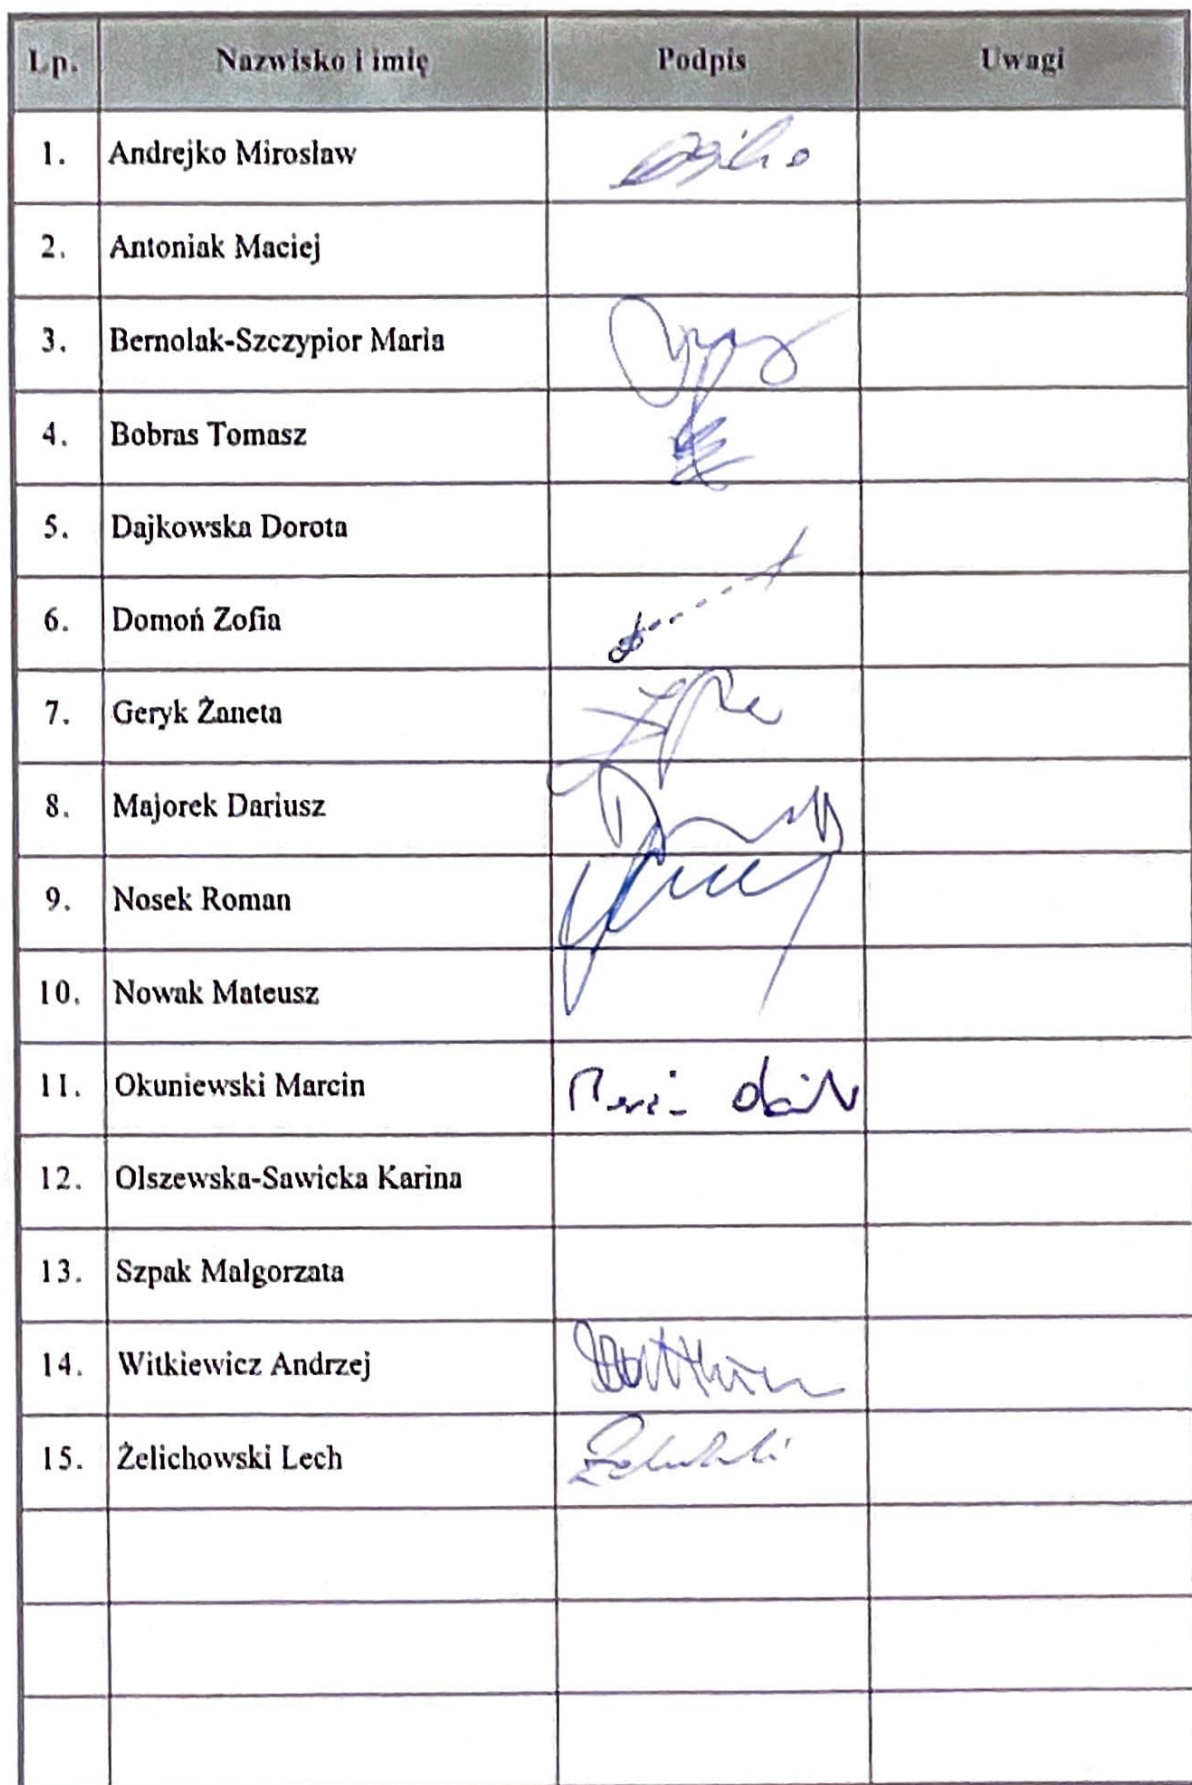 Lp. Nazwisko i imię Podpis Uwagi
1. Andrejko Mirosław
2. Antoniak Maciej
3. Bernolak-Szczypior Maria
4. Bobras Tomasz
5. Dajkowska Dorota
6. Domoń Zofia
7. Geryk Żaneta
8. Majorek Dariusz
9. Nosek Roman
10. Nowak Mateusz
11. Okuniewski Marcin
12. Olszewska-Sawicka Karina
13. Szpak Małgorzata
14. Witkiewicz Andrzej
15. Żelichowski Lech